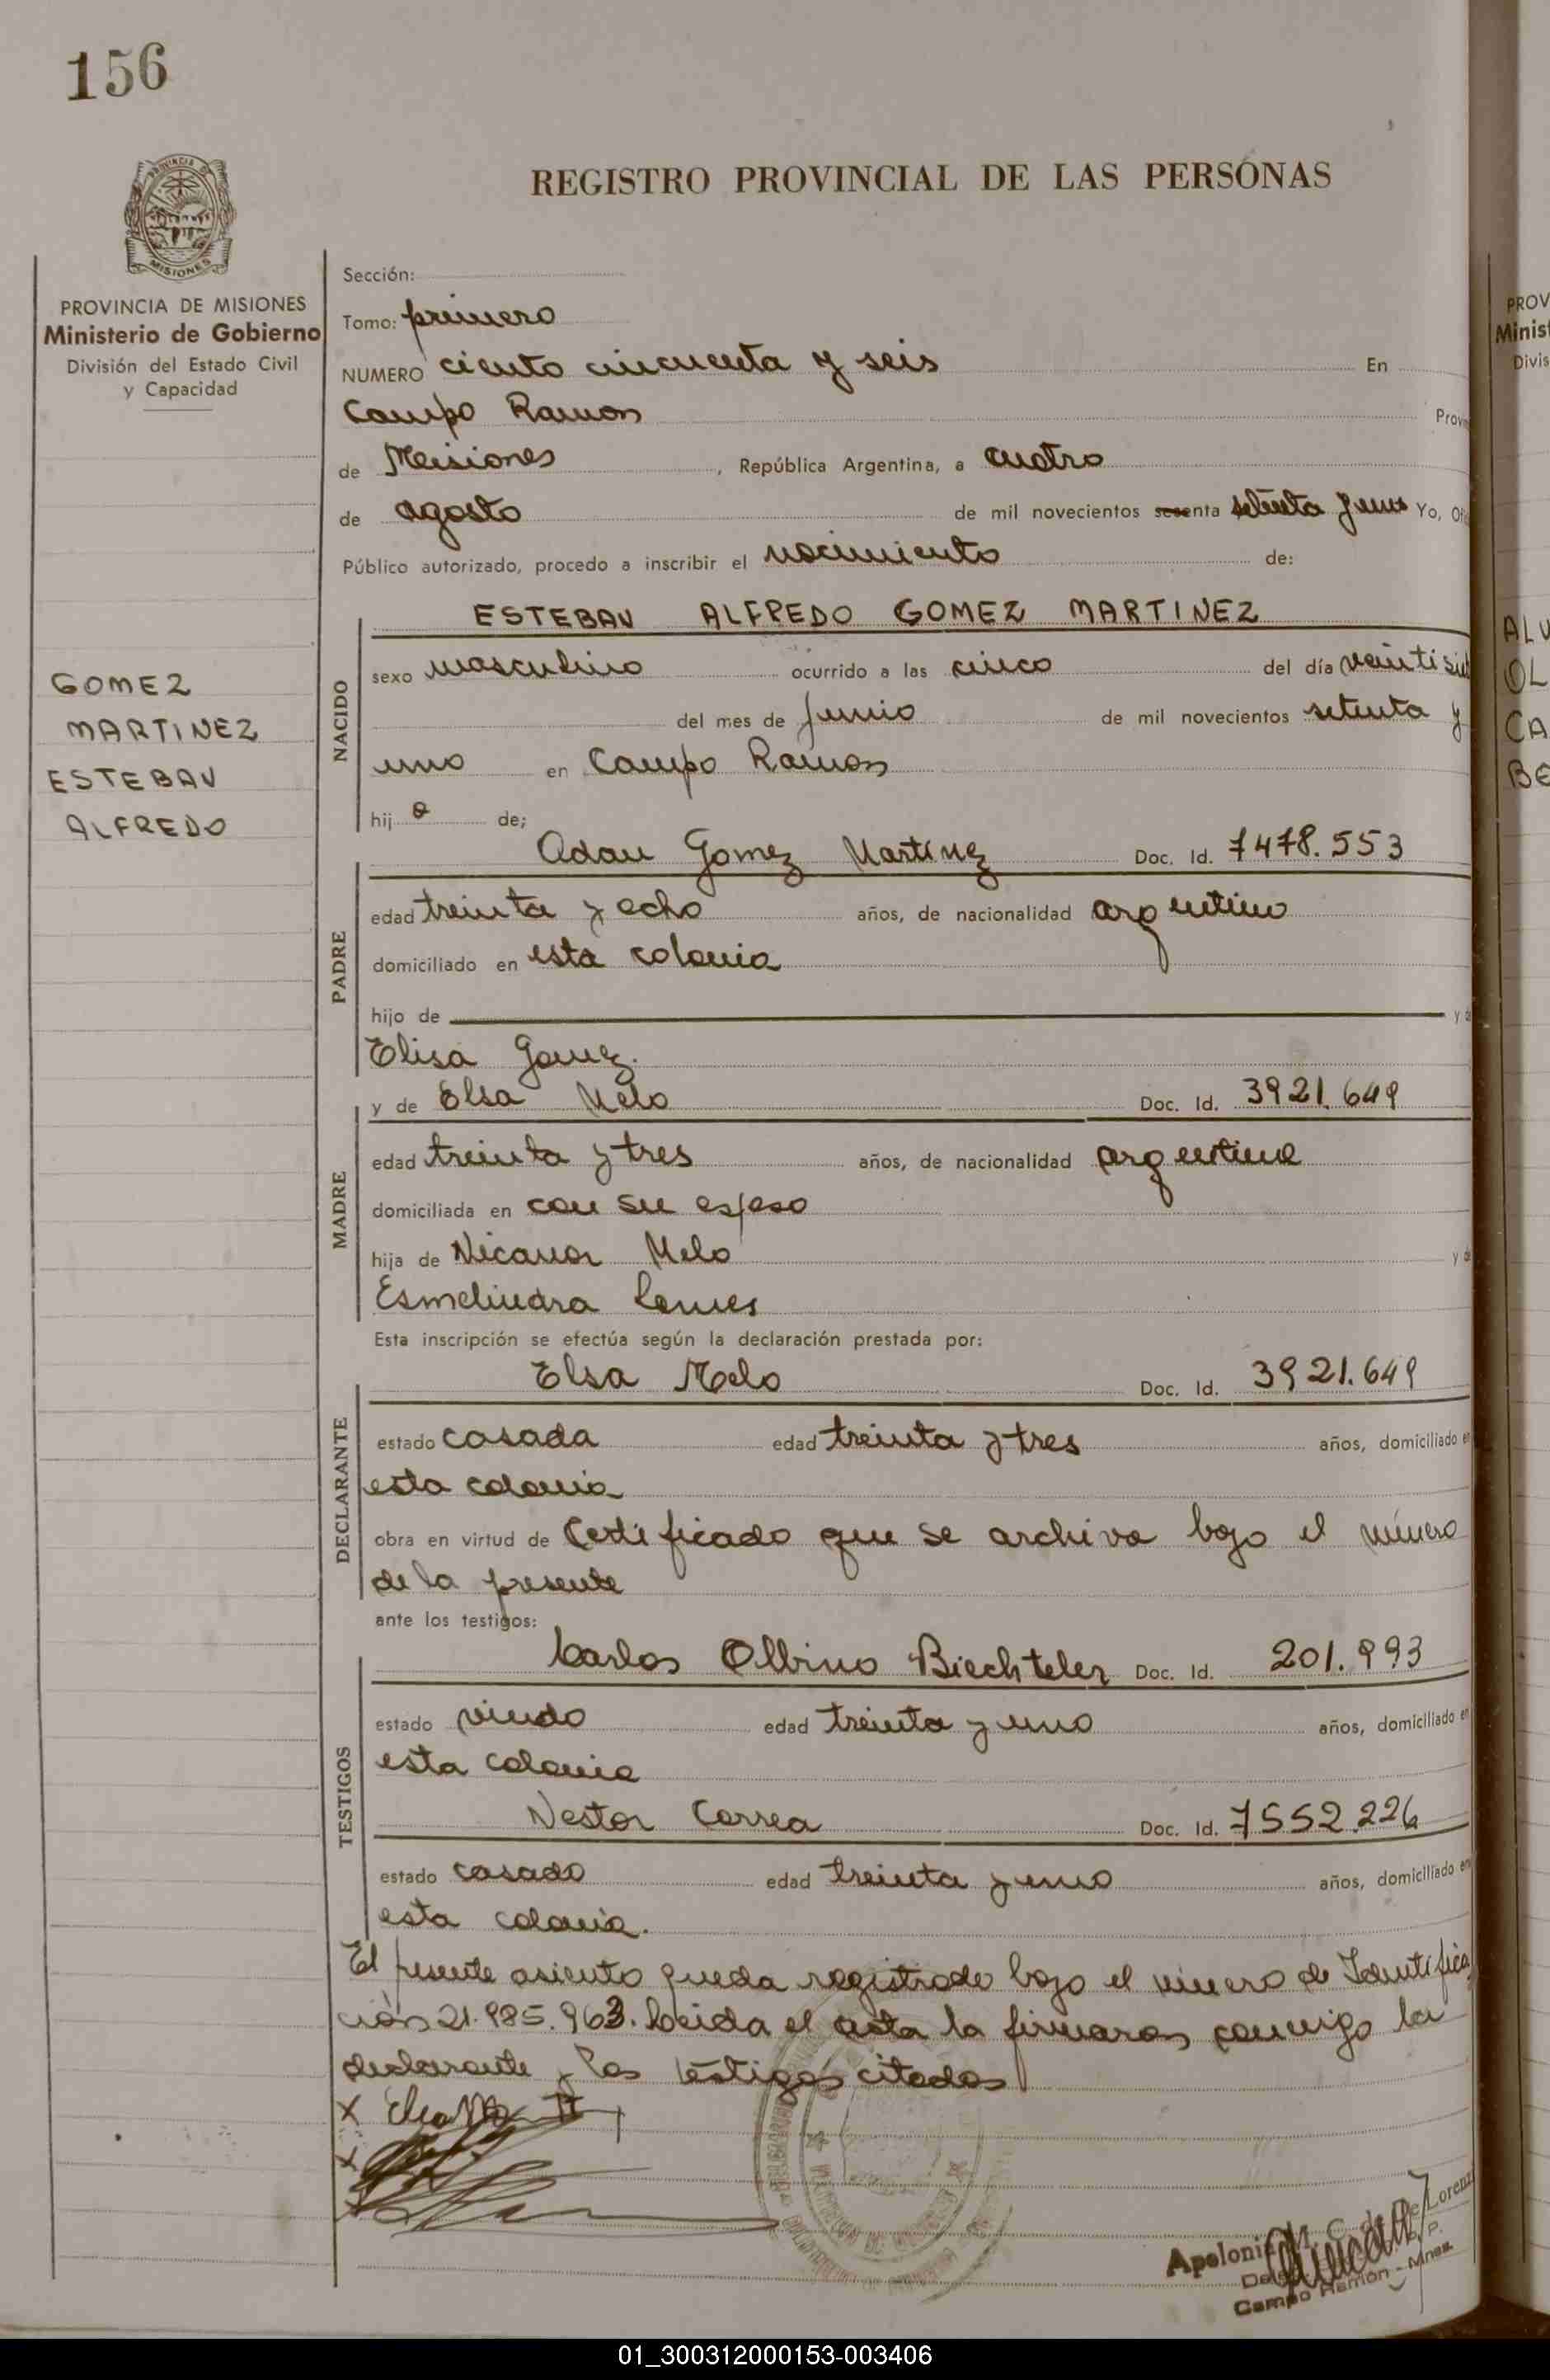 156
REGISTRO PROVINCIAL DE LAS PERSONAS
PROVINCIA DE
MISIONES
PROVINCIA DE MISIONES
Ministerio de Gobierno
División del Estado Civil
y Capacidad
GOMEZ
MARTINEZ
ESTEBAN
ALFREDO
Sección:
Tomo: primero
NUMERO ciento cincuenta y seis En
Campo Ramon Prov
de Misiones, República Argentina, a cuatro
de agosto de mil novecientos sesenta setenta y uno Yo, Ofi
Público autorizado, procedo a inscribir el nacimiento de:
NACIDO
ESTEBAN ALFREDO GOMEZ MARTINEZ
sexo masculino ocurrido a las cinco del día veintisi
del mes de Junio de mil novecientos setenta y
uno en Campo Ramon
hij o de;
PADRE
Adan Gomez Martinez Doc. Id. 7478.553
edad treinta y ocho años, de nacionalidad argentino
domiciliado en esta colonia
hijo de y d
Elisa Gomez.
MADRE
y de Elsa Melo Doc. Id. 3921.649
edad treinta y tres años, de nacionalidad argentina
domiciliada en con su esposo
hija de Nicanor Melo y de
Esmelindra Lemes
Esta inscripción se efectúa según la declaración prestada por:
DECLARANTE
Elsa Melo Doc. Id. 3921.649
estado casada edad treinta y tres años, domiciliado en
esta colonia
obra en virtud de Certificado que se archiva bajo el número
de la presente
ante los testigos:
TESTIGOS
Carlos Albino Biechteler Doc. Id. 201.993
estado viudo edad treinta y uno años, domiciliado en
esta colonia
Nestor Correa Doc. Id. 7552.226
estado casado edad treinta y uno años, domiciliado en
esta colonia.
El presente asiento queda registrado bajo el número de Identifica
ción 21.985.963. Leida el acta la firmaron conmigo la
declarante y los testigos citados
x
x
Apolonia M. C. de De Lorenz
Campo Ramón - Mnes.
PROV
Minist
Divis
ALV
OL
CA
BE
01_300312000153-003406